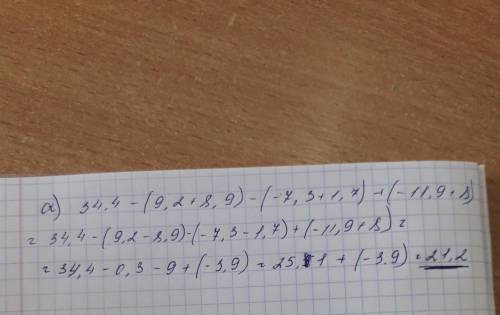 а) 34.4 - (9,2 + 8,9) - (-7,3 + 1,7) + (-11,9 + 8)
= 34,4 - (9,2 - 8,9) - (-7,3 - 1,7) + (-11,9 + 8) =
= 34,4 - 0,3 - 9 + (-3,9) = 25,1 + (-3.9) = 21,2